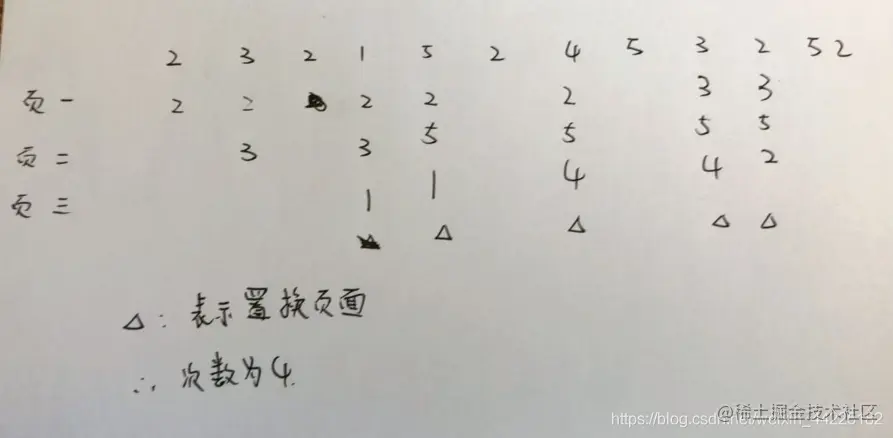 2 3 2 1 5 2 4 5 3 2 5 2
页一 2 2 2 2 2 3 3
页二 3 3 5 5 5 5
页三 1 1 4 4 2
△ △ △ △
△：表示置换页面
∴ 次数为4.
@稀土掘金技术社区